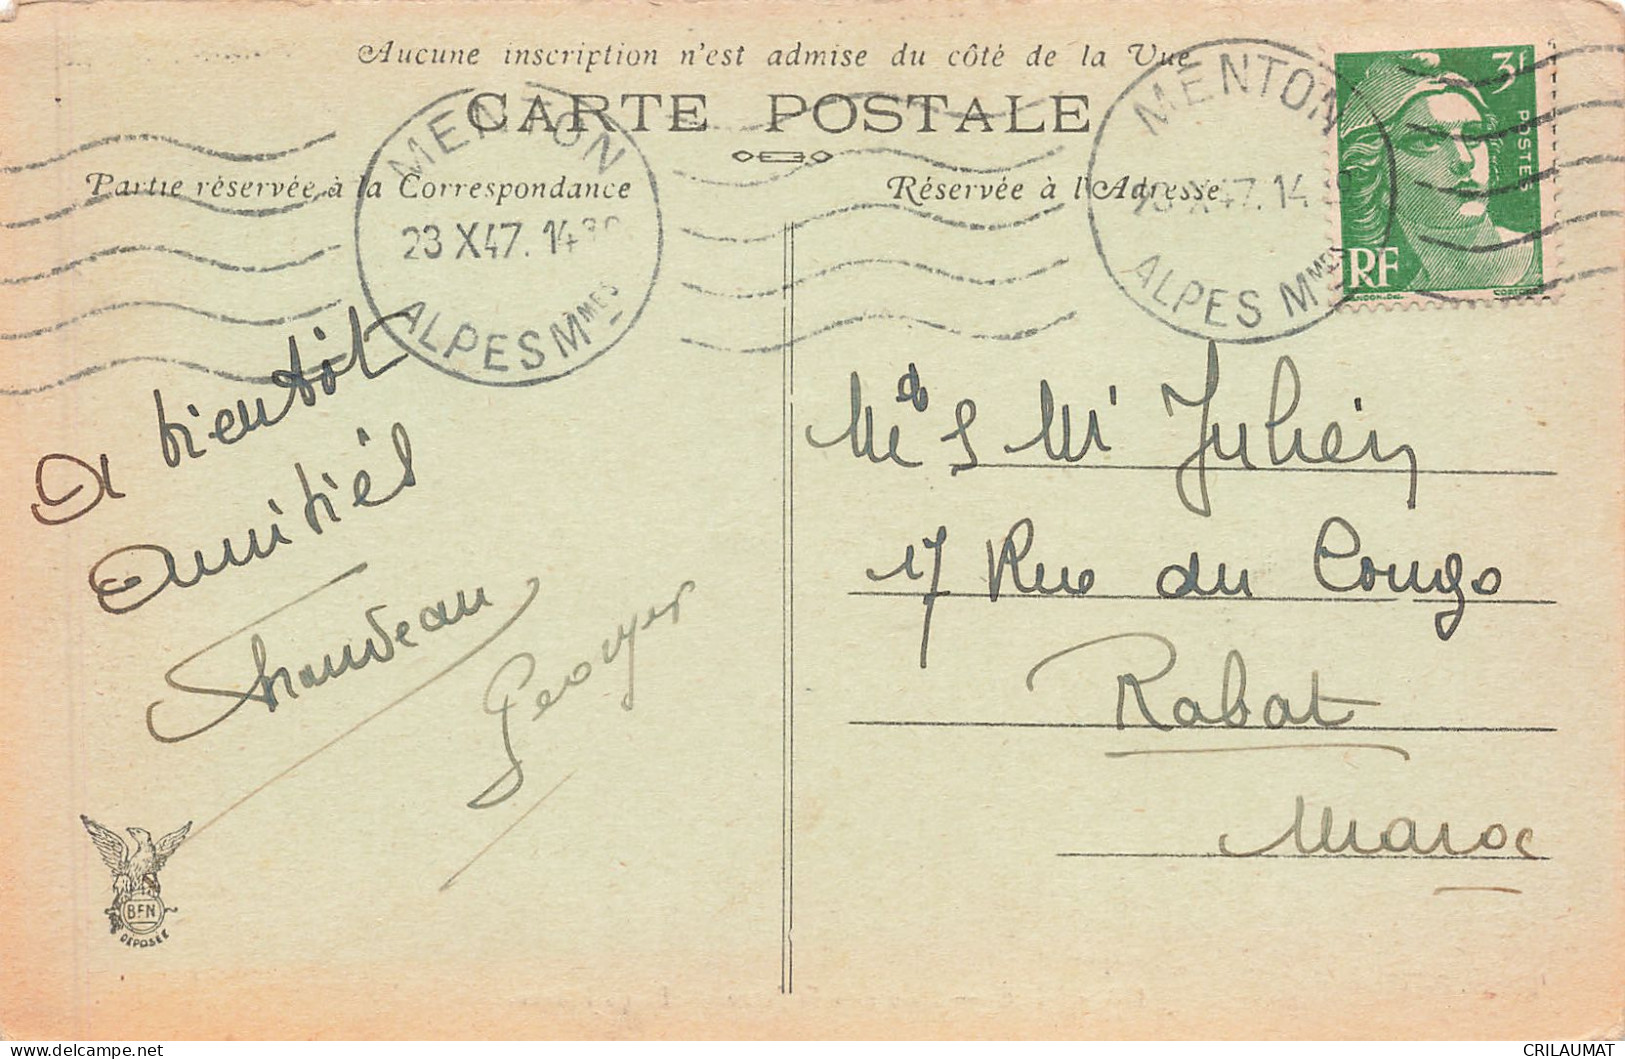 Aucune inscription n'est admise du côté de la Vue
CARTE POSTALE
Partie réservée à la Correspondance
Réservée à l'Adresse
MENTON
23 X 47. 14 30
ALPES Mmes
MENTON
23 X 47. 14 30
ALPES Mmes
3f
POSTES
RF
A bientôt
Amitiés
Georges
Me & Mr Julien
17 Rue du Congo
Rabat
Maroc
BFN
DEPOSÉE
CRILAUMAT